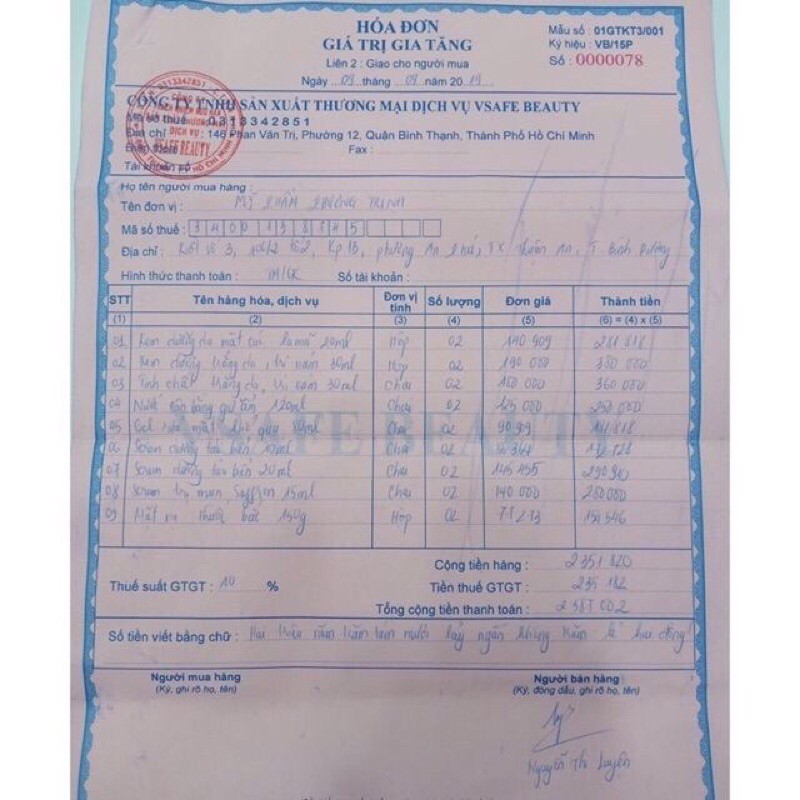 HÓA ĐƠN
GIÁ TRỊ GIA TĂNG
Liên 2 : Giao cho người mua
Ngày 09 tháng 09 năm 2019
Mẫu số : 01GTKT3/001
Ký hiệu : VB/15P
Số : 0000078
CÔNG TY TNHH SẢN XUẤT THƯƠNG MẠI DỊCH VỤ VSAFE BEAUTY
Mã số thuế : 0313342851
Địa chỉ : 146 Phan Văn Trị, Phường 12, Quận Bình Thạnh, Thành Phố Hồ Chí Minh
Fax :
Tài khoản số
Họ tên người mua hàng :
Tên đơn vị : MỸ PHẨM PHƯƠNG TRINH
Mã số thuế :
Địa chỉ : 3, tổ 2, Kp 1B, phường An Phú, TX Thuận An, T Bình Dương
Hình thức thanh toán : TM/CK Số tài khoản :
STT Tên hàng hóa, dịch vụ Đơn vị tính Số lượng Đơn giá Thành tiền
(1) (2) (3) (4) (5) (6) = (4) x (5)
01 Kem dưỡng da mặt 20ml Hộp 02 140 909 281 818
02 Kem dưỡng trắng da, trị nám 30ml Hộp 02 190 000 380 000
03 Tinh chất trắng da, trị nám 30ml Chai 02 180 000 360 000
04 Nước cân bằng 120ml Chai 02 125 000 250 000
05 Gel rửa mặt 02 90 909 181 818
06 Serum dưỡng tảo biển 10ml Chai 02
07 Serum dưỡng tảo biển 20ml Chai 02 145 455 290 910
08 Serum trị mụn, Saffron 15ml Chai 02 140 000 280 000
09 Mặt nạ thuốc bắc 150g Hộp 02 154 546
VSAFE BEAUTY
Cộng tiền hàng : 2 351 820
Thuế suất GTGT : 10 % Tiền thuế GTGT : 235 182
Tổng cộng tiền thanh toán : 2 587 002
Số tiền viết bằng chữ : Hai triệu năm trăm tám mươi bảy ngàn không trăm lẻ hai đồng!
Người mua hàng
(Ký, ghi rõ họ, tên)
Người bán hàng
(Ký, đóng dấu, ghi rõ họ, tên)
Nguyễn Thị Luyện